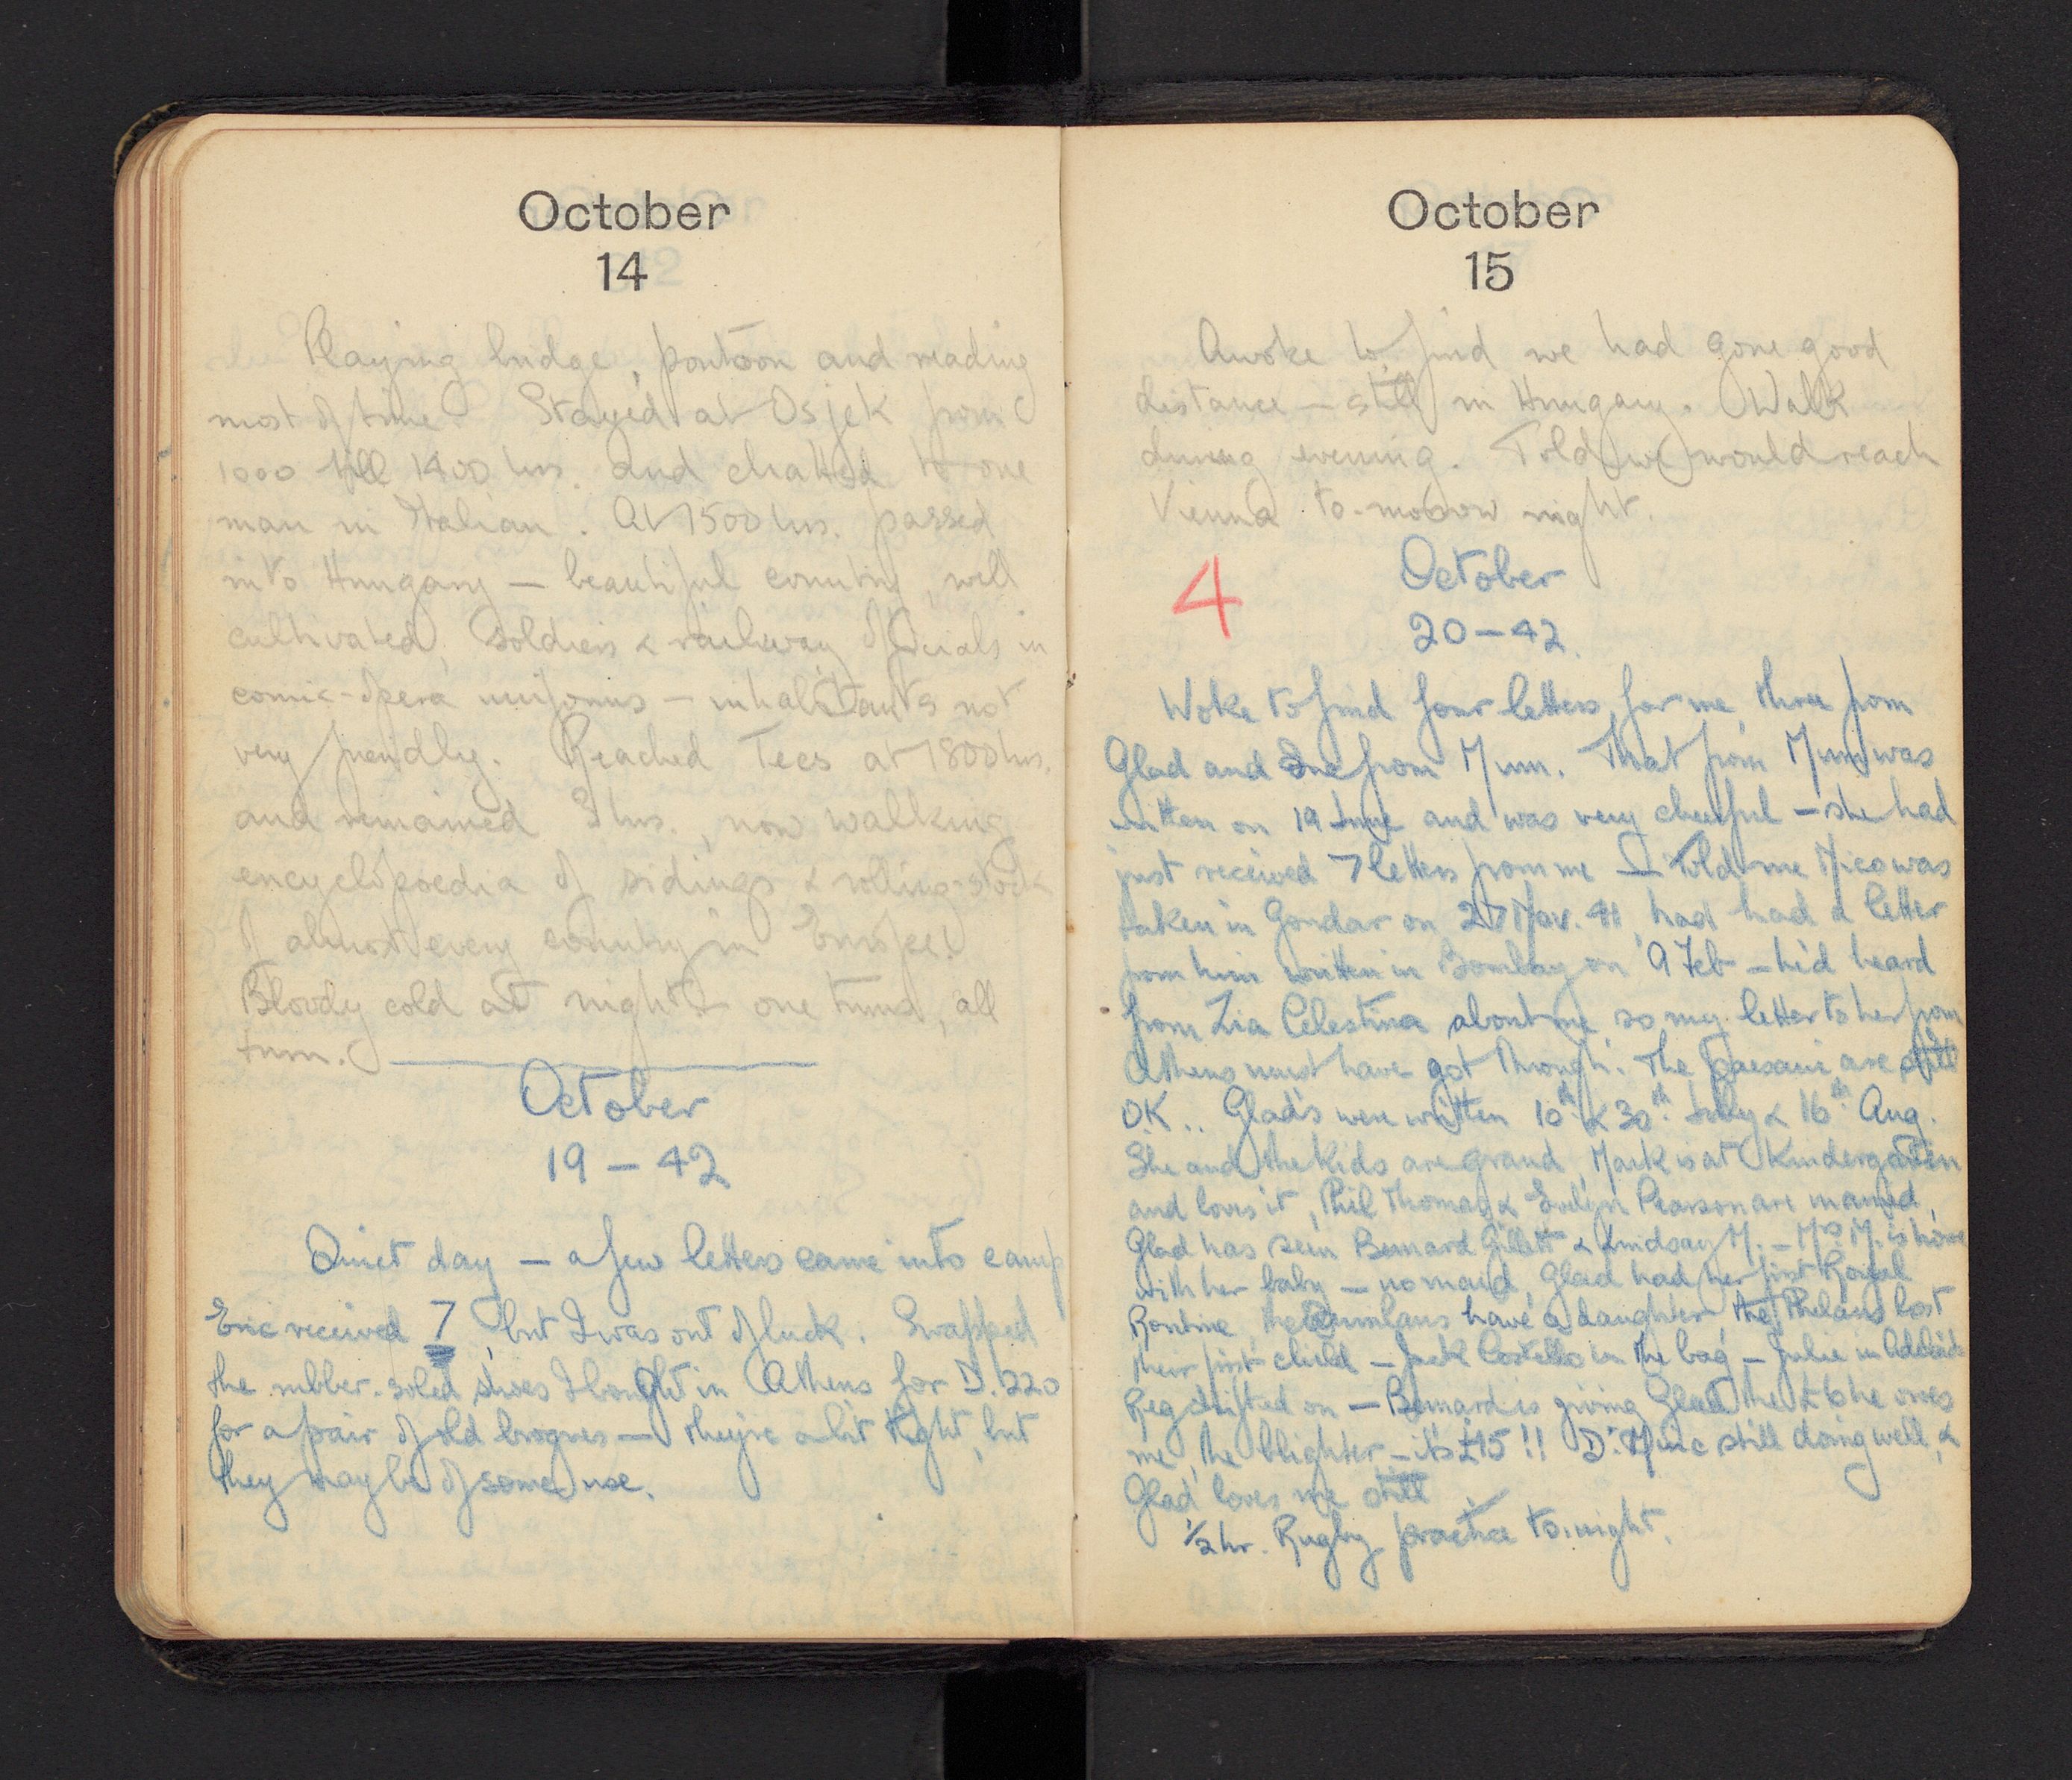 October
14
Playing bridge, pontoon and reading
most of time. Stayed at Osjek from
1000 till 1400 hrs. and chatted to one
man in Italian. At 1500 hrs. passed
into Hungary — beautiful country, well
cultivated, soldiers & railway officials in
comic-opera uniforms — inhabitants not
very friendly. Reached Tecs at 1800 hrs.
and remained 3 hrs., now walking
encyclopoedia of sidings & rolling-stock
of almost every country in Europe!
Bloody cold at night & one turns, all
turn.
October
19 – 42
Quiet day — a few letters came into camp
Eric received 7, but I was out of luck. Swapped
the rubber-soled shoes I bought in Athens for D.220
for a pair of old brogues — they're a bit tight, but
they may be of some use.
October
15
Awoke to find we had gone good
distance — still in Hungary. Walk
during evening. Told we would reach
Vienna to-morrow night.
4
October
20 – 42
Woke to find four letters for me, three from
Glad and one from Mum. That from Mum was
written on 19 June and was very cheerful — she had
just received 7 letters from me — Told me Mico was
taken in Gondar on 27 Nov. 41, had had a letter
from him written in Bombay on 9 Feb — he'd heard
from Zia Celestina about me so my letter to her from
Athens must have got through. The paesani are still
OK.. Glad's were written 10th & 30th July & 16th Aug.
She and the kids are grand, Mark is at Kindergarten
and loves it, Phil Thomas & Evelyn Pearson are married,
Glad has seen Bernard Gillett & Lindsay M. — Mrs M. is home
with her baby — no maid, Glad had her first Royal
Routine, the have a daughter, the Phelans lost
their first child — Jack Costello in the bag — Julie in Adelaide
Reg drifted on — Bernard is giving Glad the £6 he owes
me, the blighter — it's £15!! Dr. still doing well, &
Glad loves me still.
½ hr. Rugby practice to-night.